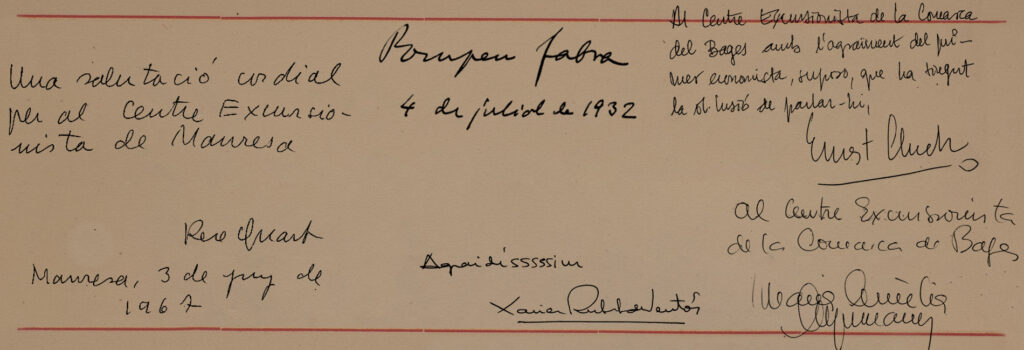 Una salutació cordial
per al Centre Excursio-
nista de Manresa
Pere Quart
Manresa, 3 de juny de
1967
Pompeu Fabra
4 de juliol de 1932
Agraidisssssim
Xavier Rubert de Ventós
Al Centre Excursionista de la Comarca
del Bages amb l'agraïment del pri-
mer economista, suposo, que ha tingut
la il·lusió de parlar-hi,
Ernest Lluch
Al Centre Excursionista
de la Comarca de Bages
Maria Aurèlia
Capmany